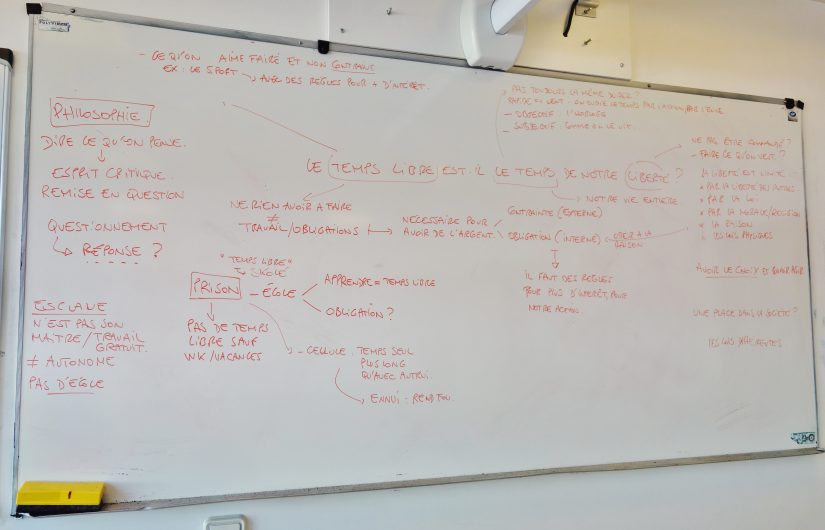 - CE QU'ON AIME FAIRE ET NON CONTRAINT
EX : LE SPORT → AVEC DES REGLES POUR + D'INTÉRÊT.
PHILOSOPHIE
DIRE CE QU'ON PENSE.
ESPRIT CRITIQUE.
REMISE EN QUESTION
QUESTIONNEMENT
RÉPONSE ?
PAS TOUJOURS LA MÊME DURÉE ?
- OBJECTIF : L'HORLOGE
- SUBJECTIF : COMME ON LE VIT.
LE TEMPS LIBRE EST-IL LE TEMPS DE NOTRE LIBERTÉ ?
NE PAS ÊTRE COMMANDÉ ?
- FAIRE CE QU'ON VEUT. ?
LA LIBERTÉ EST LIMITÉE :
* PAR LA LIBERTÉ DES AUTRES
* PAR LA LOI
* PAR LA MORALE/RELIGION
* LA RAISON
LES LOIS PHYSIQUES
AVOIR LE CHOIX ET
UNE PLACE DANS LA SOCIETÉ ?
NOTRE VIE ENTIÈRE
NE RIEN AVOIR A FAIRE
≠
TRAVAIL/OBLIGATIONS
NECESSAIRE POUR
AVOIR DE L'ARGENT.
CONTRAINTE (EXTERNE)
OBLIGATION (INTERNE)
OBEIR A LA
RAISON
IL FAUT DES REGLES
POUR PLUS D'INTÉRÊT, POUR
NOTRE
"TEMPS LIBRE"
SKOLÉ
PRISON - ÉCOLE
APPRENDRE = TEMPS LIBRE
OBLIGATION ?
PAS DE TEMPS
LIBRE SAUF
WK/VACANCES
- CELLULE : TEMPS SEUL
PLUS LONG
QU'AVEC AUTRUI.
ENNUI : REND FOU.
ESCLAVE
N'EST PAS SON
MAÎTRE/TRAVAIL
GRATUIT.
≠ AUTONOME
PAS D'ÉCOLE